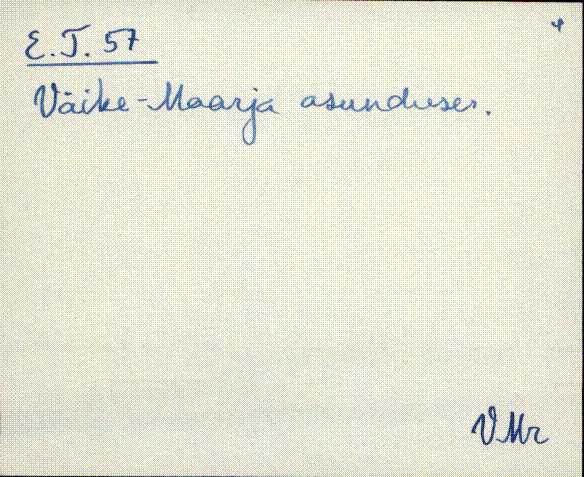 E.T. 57
4
Väike-Maarja asunduses.
VMr